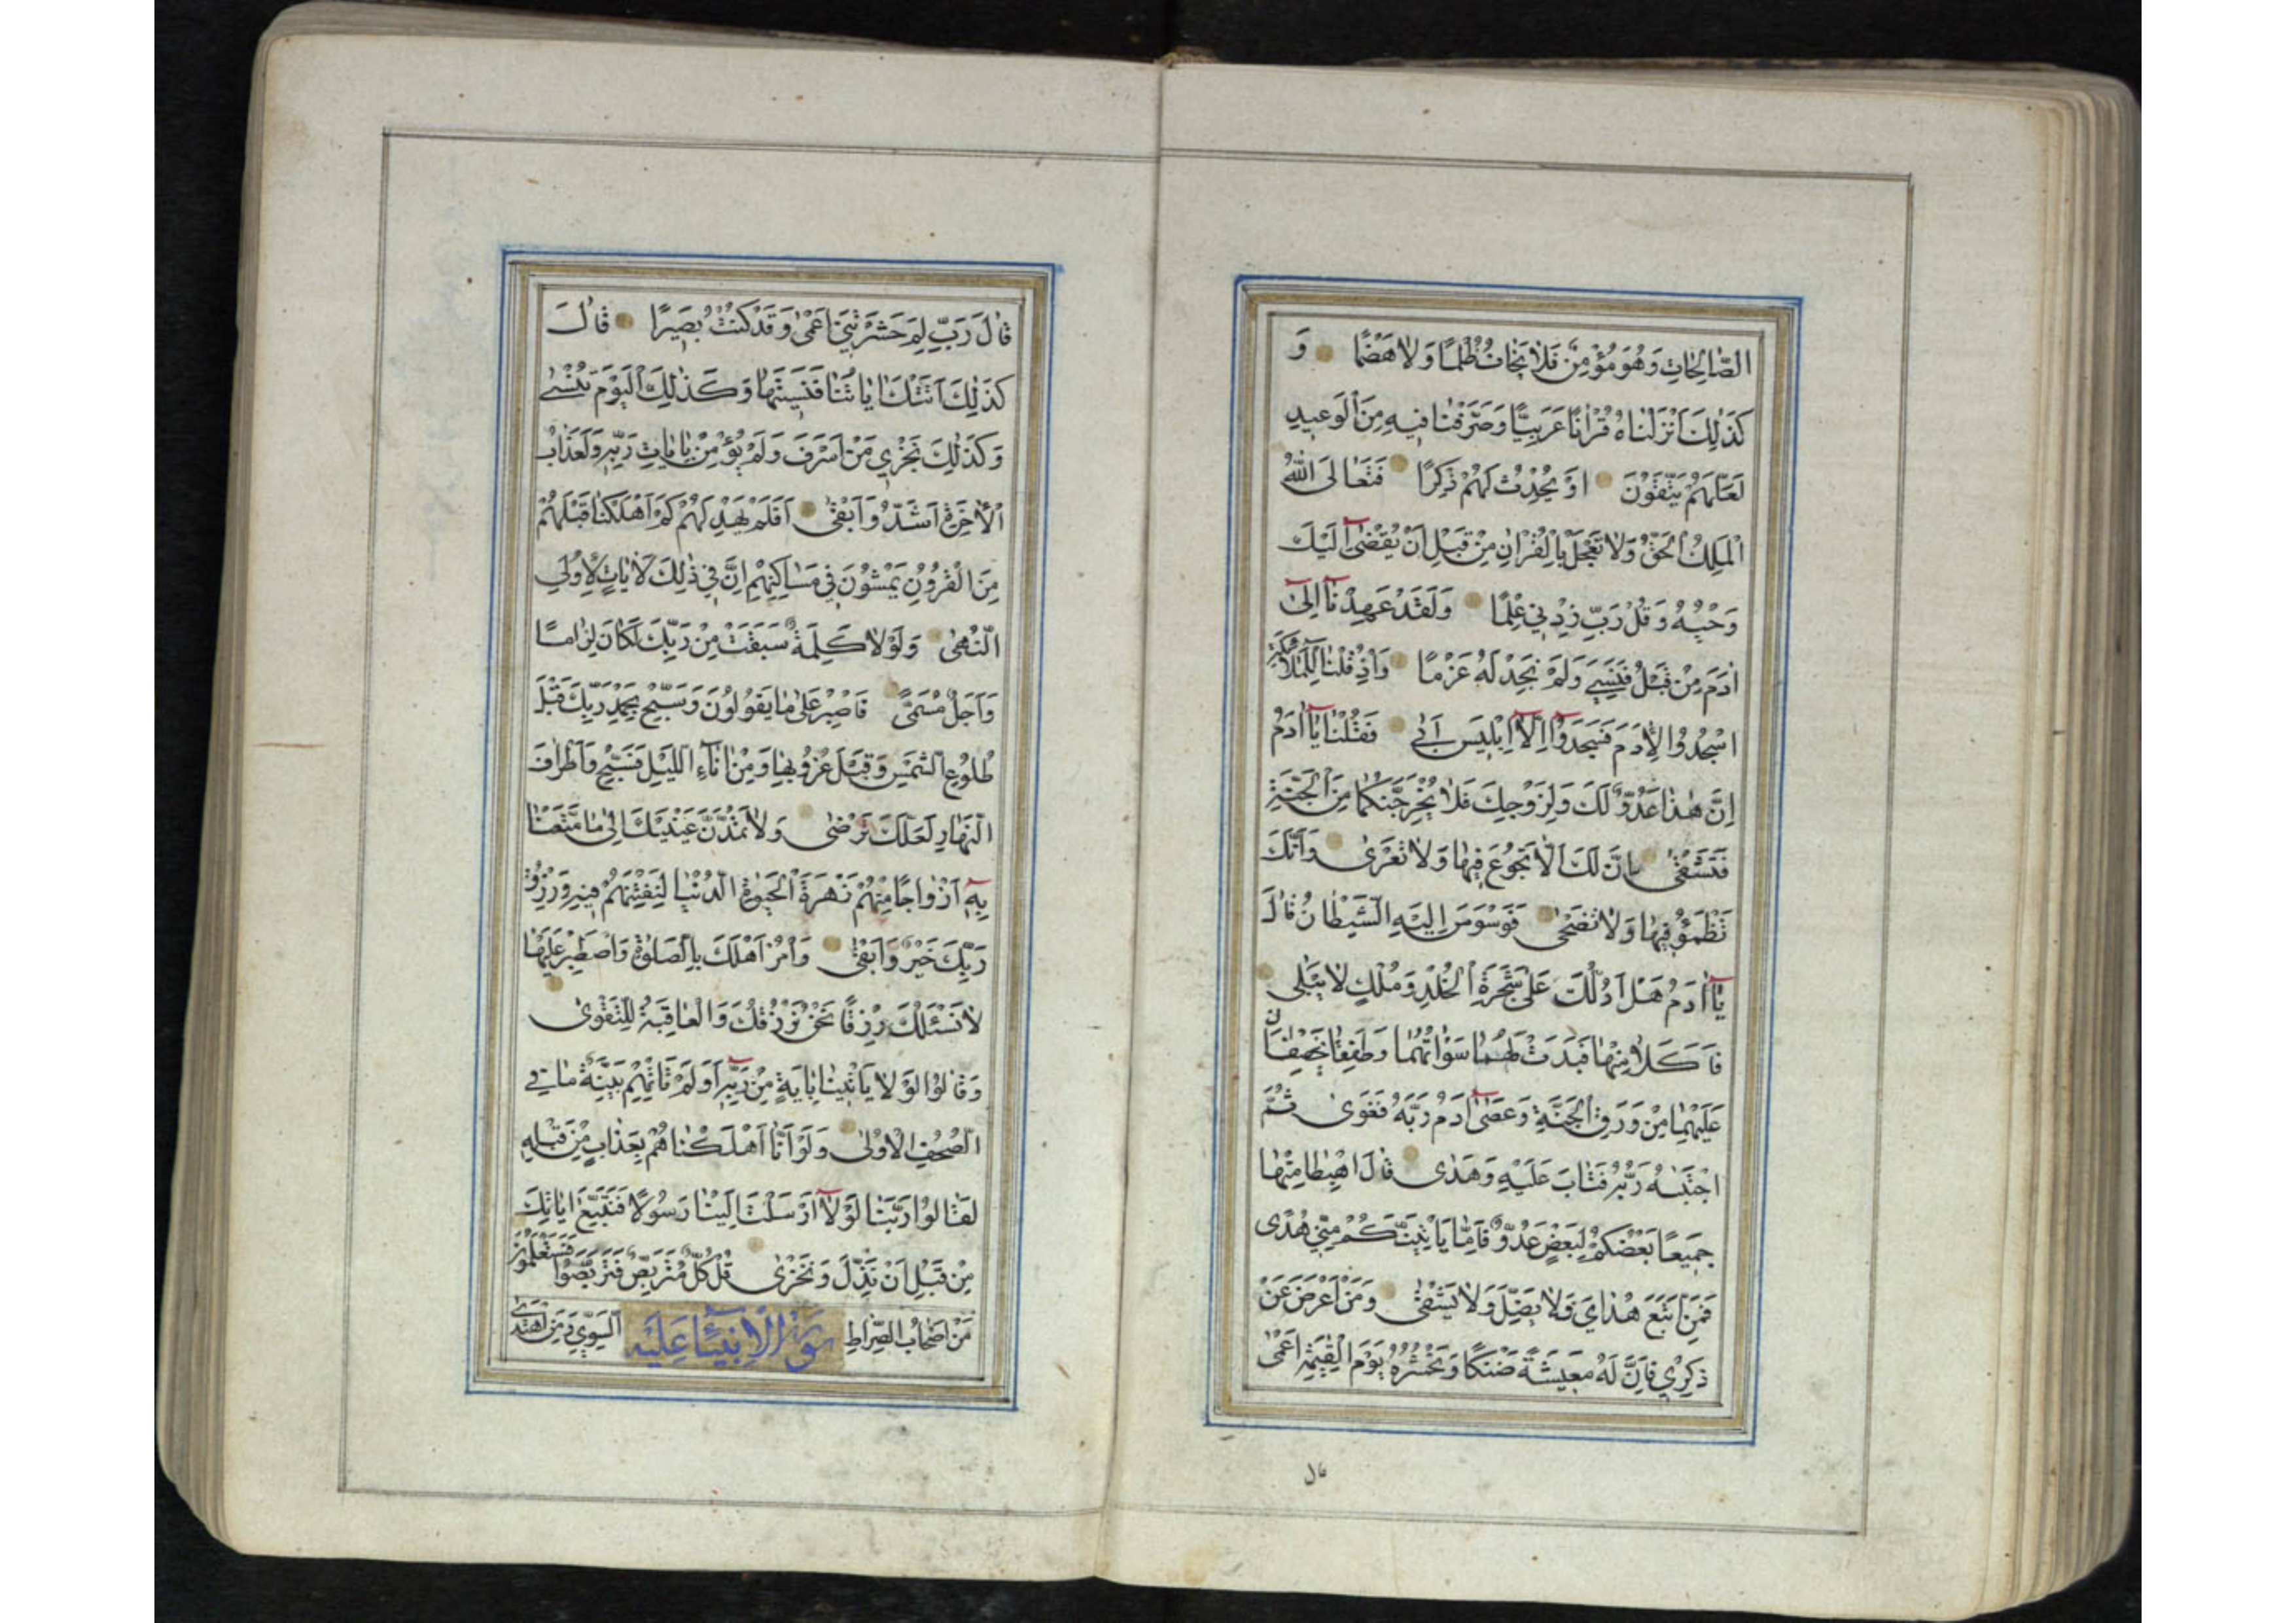 الصَّالِحَاتِ وَهُوَ مُؤْمِنٌ فَلَا يَخَافُ ظُلْمًا وَلَا هَضْمًا وَ
كَذَلِكَ اَنْزَلْنَاهُ قُرْاٰنًا عَرَبِيًّا وَصَرَّفْنَا فِيهِ مِنَ الْوَعِيدِ
لَعَلَّهُمْ يَتَّقُونَ اَوْ يُحْدِثُ لَهُمْ ذِكْرًا فَتَعَالَى اللّٰهُ
الْمَلِكُ الْحَقُّ وَلَا تَعْجَلْ بِالْقُرْاٰنِ مِنْ قَبْلِ اَنْ يُقْضٰى اِلَيْكَ
وَحْيُهُ وَقُلْ رَبِّ زِدْنِي عِلْمًا وَلَقَدْ عَهِدْنَا اِلٰى
اٰدَمَ مِنْ قَبْلُ فَنَسِيَ وَلَمْ نَجِدْ لَهُ عَزْمًا وَاِذْ قُلْنَا لِلْمَلَائِكَةِ
اسْجُدُوا لِاٰدَمَ فَسَجَدُوا اِلَّا اِبْلِيسَ اَبٰى فَقُلْنَا يَا اٰدَمُ
اِنَّ هٰذَا عَدُوٌّ لَكَ وَلِزَوْجِكَ فَلَا يُخْرِجَنَّكُمَا مِنَ الْجَنَّةِ
فَتَشْقٰى اِنَّ لَكَ اَلَّا تَجُوعَ فِيهَا وَلَا تَعْرٰى وَاَنَّكَ
تَظْمَؤُ فِيهَا وَلَا تَضْحٰى فَوَسْوَسَ اِلَيْهِ الشَّيْطَانُ قَالَ
يَا اٰدَمُ هَلْ اَدُلُّكَ عَلٰى شَجَرَةِ الْخُلْدِ وَمُلْكٍ لَا يَبْلٰى
فَاَكَلَا مِنْهَا فَبَدَتْ لَهُمَا سَوْاٰتُهُمَا وَطَفِقَا يَخْصِفَانِ
عَلَيْهِمَا مِنْ وَرَقِ الْجَنَّةِ وَعَصٰى اٰدَمُ رَبَّهُ فَغَوٰى ثُمَّ
اجْتَبٰهُ رَبُّهُ فَتَابَ عَلَيْهِ وَهَدٰى قَالَ اهْبِطَا مِنْهَا
جَمِيعًا بَعْضُكُمْ لِبَعْضٍ عَدُوٌّ فَاِمَّا يَاْتِيَنَّكُمْ مِنِّي هُدًى
فَمَنِ اتَّبَعَ هُدَايَ فَلَا يَضِلُّ وَلَا يَشْقٰى وَمَنْ اَعْرَضَ عَنْ
ذِكْرِي فَاِنَّ لَهُ مَعِيشَةً ضَنْكًا وَنَحْشُرُهُ يَوْمَ الْقِيٰمَةِ اَعْمٰى
قال
قَالَ رَبِّ لِمَ حَشَرْتَنِي اَعْمٰى وَقَدْ كُنْتُ بَصِيرًا قَالَ
كَذٰلِكَ اَتَتْكَ اٰيَاتُنَا فَنَسِيتَهَا وَكَذٰلِكَ الْيَوْمَ تُنْسٰى
وَكَذٰلِكَ نَجْزِي مَنْ اَسْرَفَ وَلَمْ يُؤْمِنْ بِاٰيَاتِ رَبِّهِ وَلَعَذَابُ
الْاٰخِرَةِ اَشَدُّ وَاَبْقٰى اَفَلَمْ يَهْدِ لَهُمْ كَمْ اَهْلَكْنَا قَبْلَهُمْ
مِنَ الْقُرُونِ يَمْشُونَ فِي مَسَاكِنِهِمْ اِنَّ فِي ذٰلِكَ لَاٰيَاتٍ لِاُولِي
النُّهٰى وَلَوْلَا كَلِمَةٌ سَبَقَتْ مِنْ رَبِّكَ لَكَانَ لِزَامًا
وَاَجَلٌ مُسَمًّى فَاصْبِرْ عَلٰى مَا يَقُولُونَ وَسَبِّحْ بِحَمْدِ رَبِّكَ قَبْلَ
طُلُوعِ الشَّمْسِ وَقَبْلَ غُرُوبِهَا وَمِنْ اٰنَاءِ اللَّيْلِ فَسَبِّحْ وَاَطْرَافَ
النَّهَارِ لَعَلَّكَ تَرْضٰى وَلَا تَمُدَّنَّ عَيْنَيْكَ اِلٰى مَا مَتَّعْنَا
بِهِ اَزْوَاجًا مِنْهُمْ زَهْرَةَ الْحَيٰوةِ الدُّنْيَا لِنَفْتِنَهُمْ فِيهِ وَرِزْقُ
رَبِّكَ خَيْرٌ وَاَبْقٰى وَاْمُرْ اَهْلَكَ بِالصَّلٰوةِ وَاصْطَبِرْ عَلَيْهَا
لَا نَسْئَلُكَ رِزْقًا نَحْنُ نَرْزُقُكَ وَالْعَاقِبَةُ لِلتَّقْوٰى
وَقَالُوا لَوْلَا يَاْتِينَا بِاٰيَةٍ مِنْ رَبِّهِ اَوَلَمْ تَاْتِهِمْ بَيِّنَةُ مَا فِي
الصُّحُفِ الْاُولٰى وَلَوْ اَنَّا اَهْلَكْنَاهُمْ بِعَذَابٍ مِنْ قَبْلِهِ
لَقَالُوا رَبَّنَا لَوْلَا اَرْسَلْتَ اِلَيْنَا رَسُولًا فَنَتَّبِعَ اٰيَاتِكَ
مِنْ قَبْلِ اَنْ نَذِلَّ وَنَخْزٰى قُلْ كُلٌّ مُتَرَبِّصٌ فَتَرَبَّصُوا فَسَتَعْلَمُونَ
مَنْ اَصْحَابُ الصِّرَاطِ سورة الانبياء عليه السَّوِيِّ وَمَنِ اهْتَدٰى